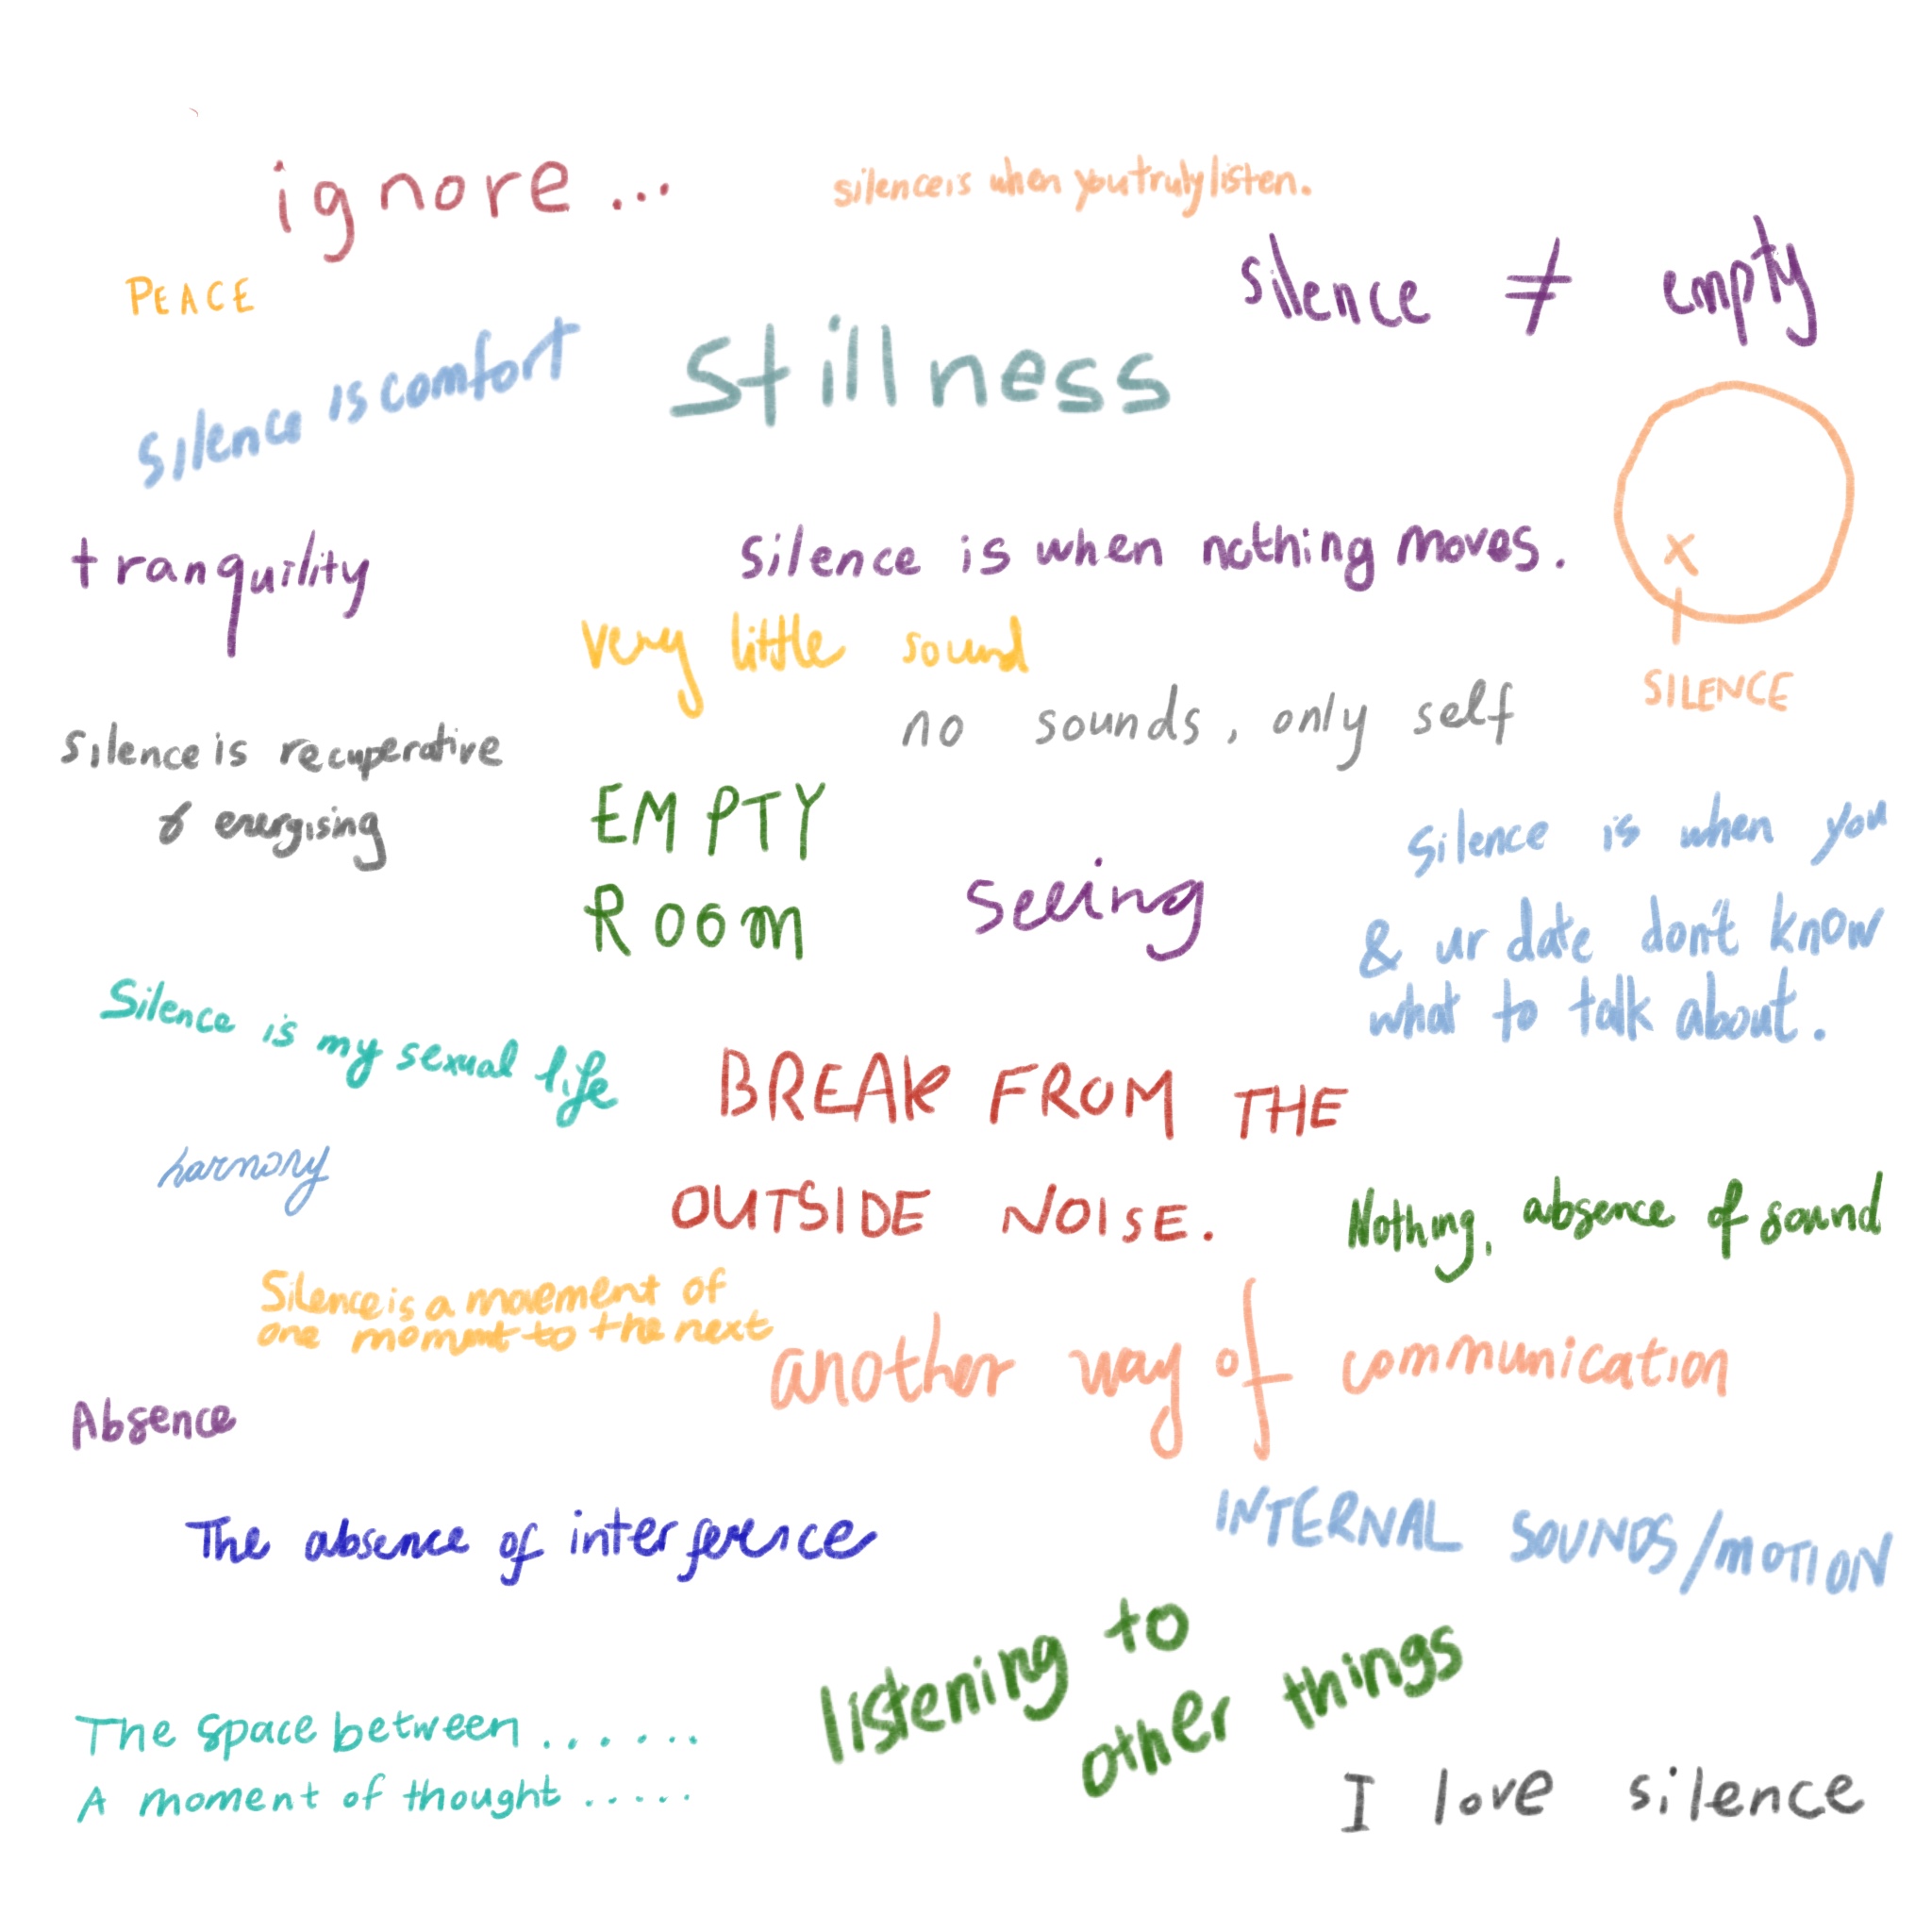 ignore...
silence is when you truly listen.
silence ≠ empty
PEACE
silence is comfort
stillness
tranquility
silence is when nothing moves.
x
SILENCE
very little sound
no sounds, only self
silence is recuperative
& energising
EMPTY
ROOM
seeing
silence is when you
& ur date don't know
what to talk about.
Silence is my sexual life
BREAK FROM THE
OUTSIDE NOISE.
harmony
Nothing, absence of sound
Silence is a movement of
one moment to the next
another way of communication
Absence
The absence of interference
INTERNAL SOUNDS/MOTION
listening to
other things
The space between......
A moment of thought.....
I love silence